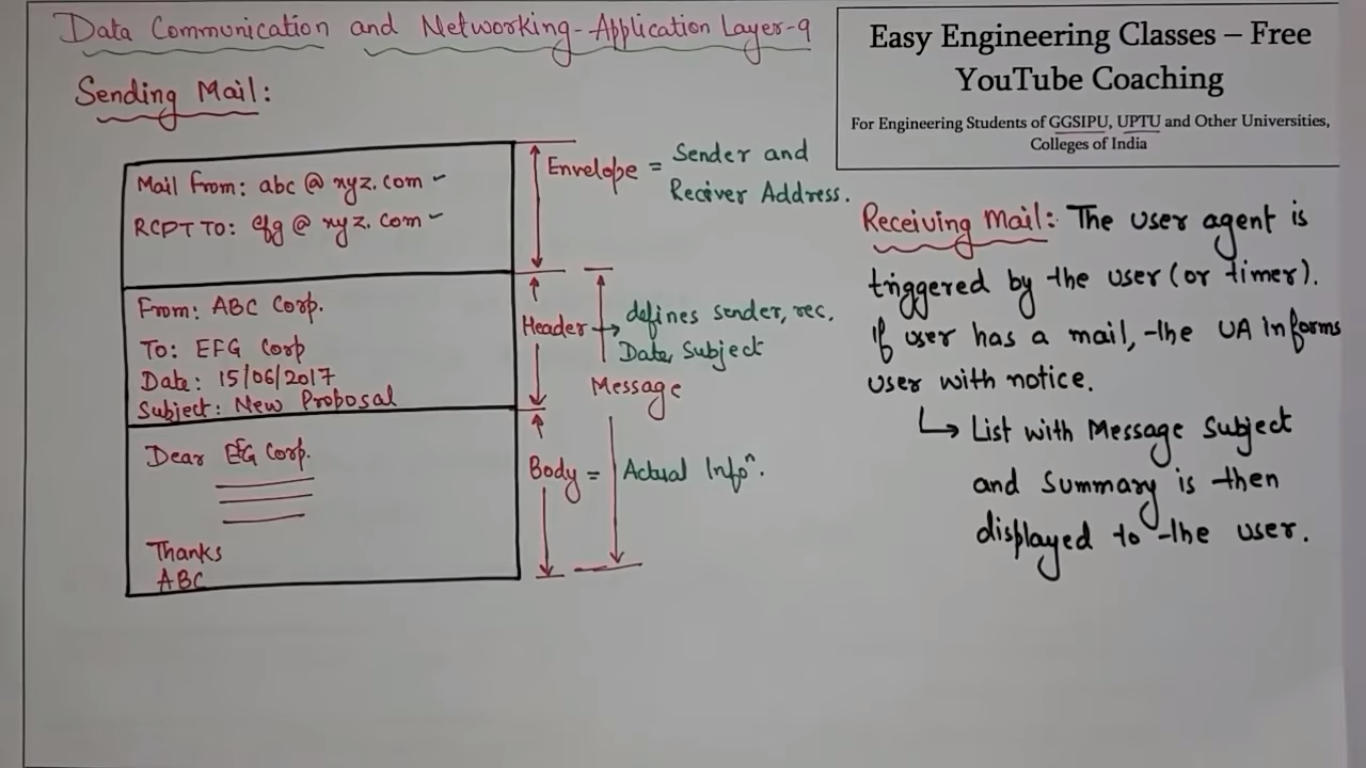 Data Communication and Networking-Application Layer-9
Easy Engineering Classes – Free
YouTube Coaching
For Engineering Students of GGSIPU, UPTU and Other Universities,
Colleges of India
Sending Mail:
Mail From: abc @ xyz.com
RCPT TO: efg @ xyz.com
From: ABC Corp.
To: EFG Corp
Date: 15/06/2017
Subject: New Proposal
Dear EFG Corp.
Thanks
ABC
Envelope = Sender and
Reciver Address.
Header → defines sender, rec,
Date, Subject
Message
Body = Actual Infoⁿ.
Receiving Mail: The user agent is
triggered by the user (or timer).
if user has a mail, the UA informs
user with notice.
↳ List with Message Subject
and Summary is then
displayed to the user.